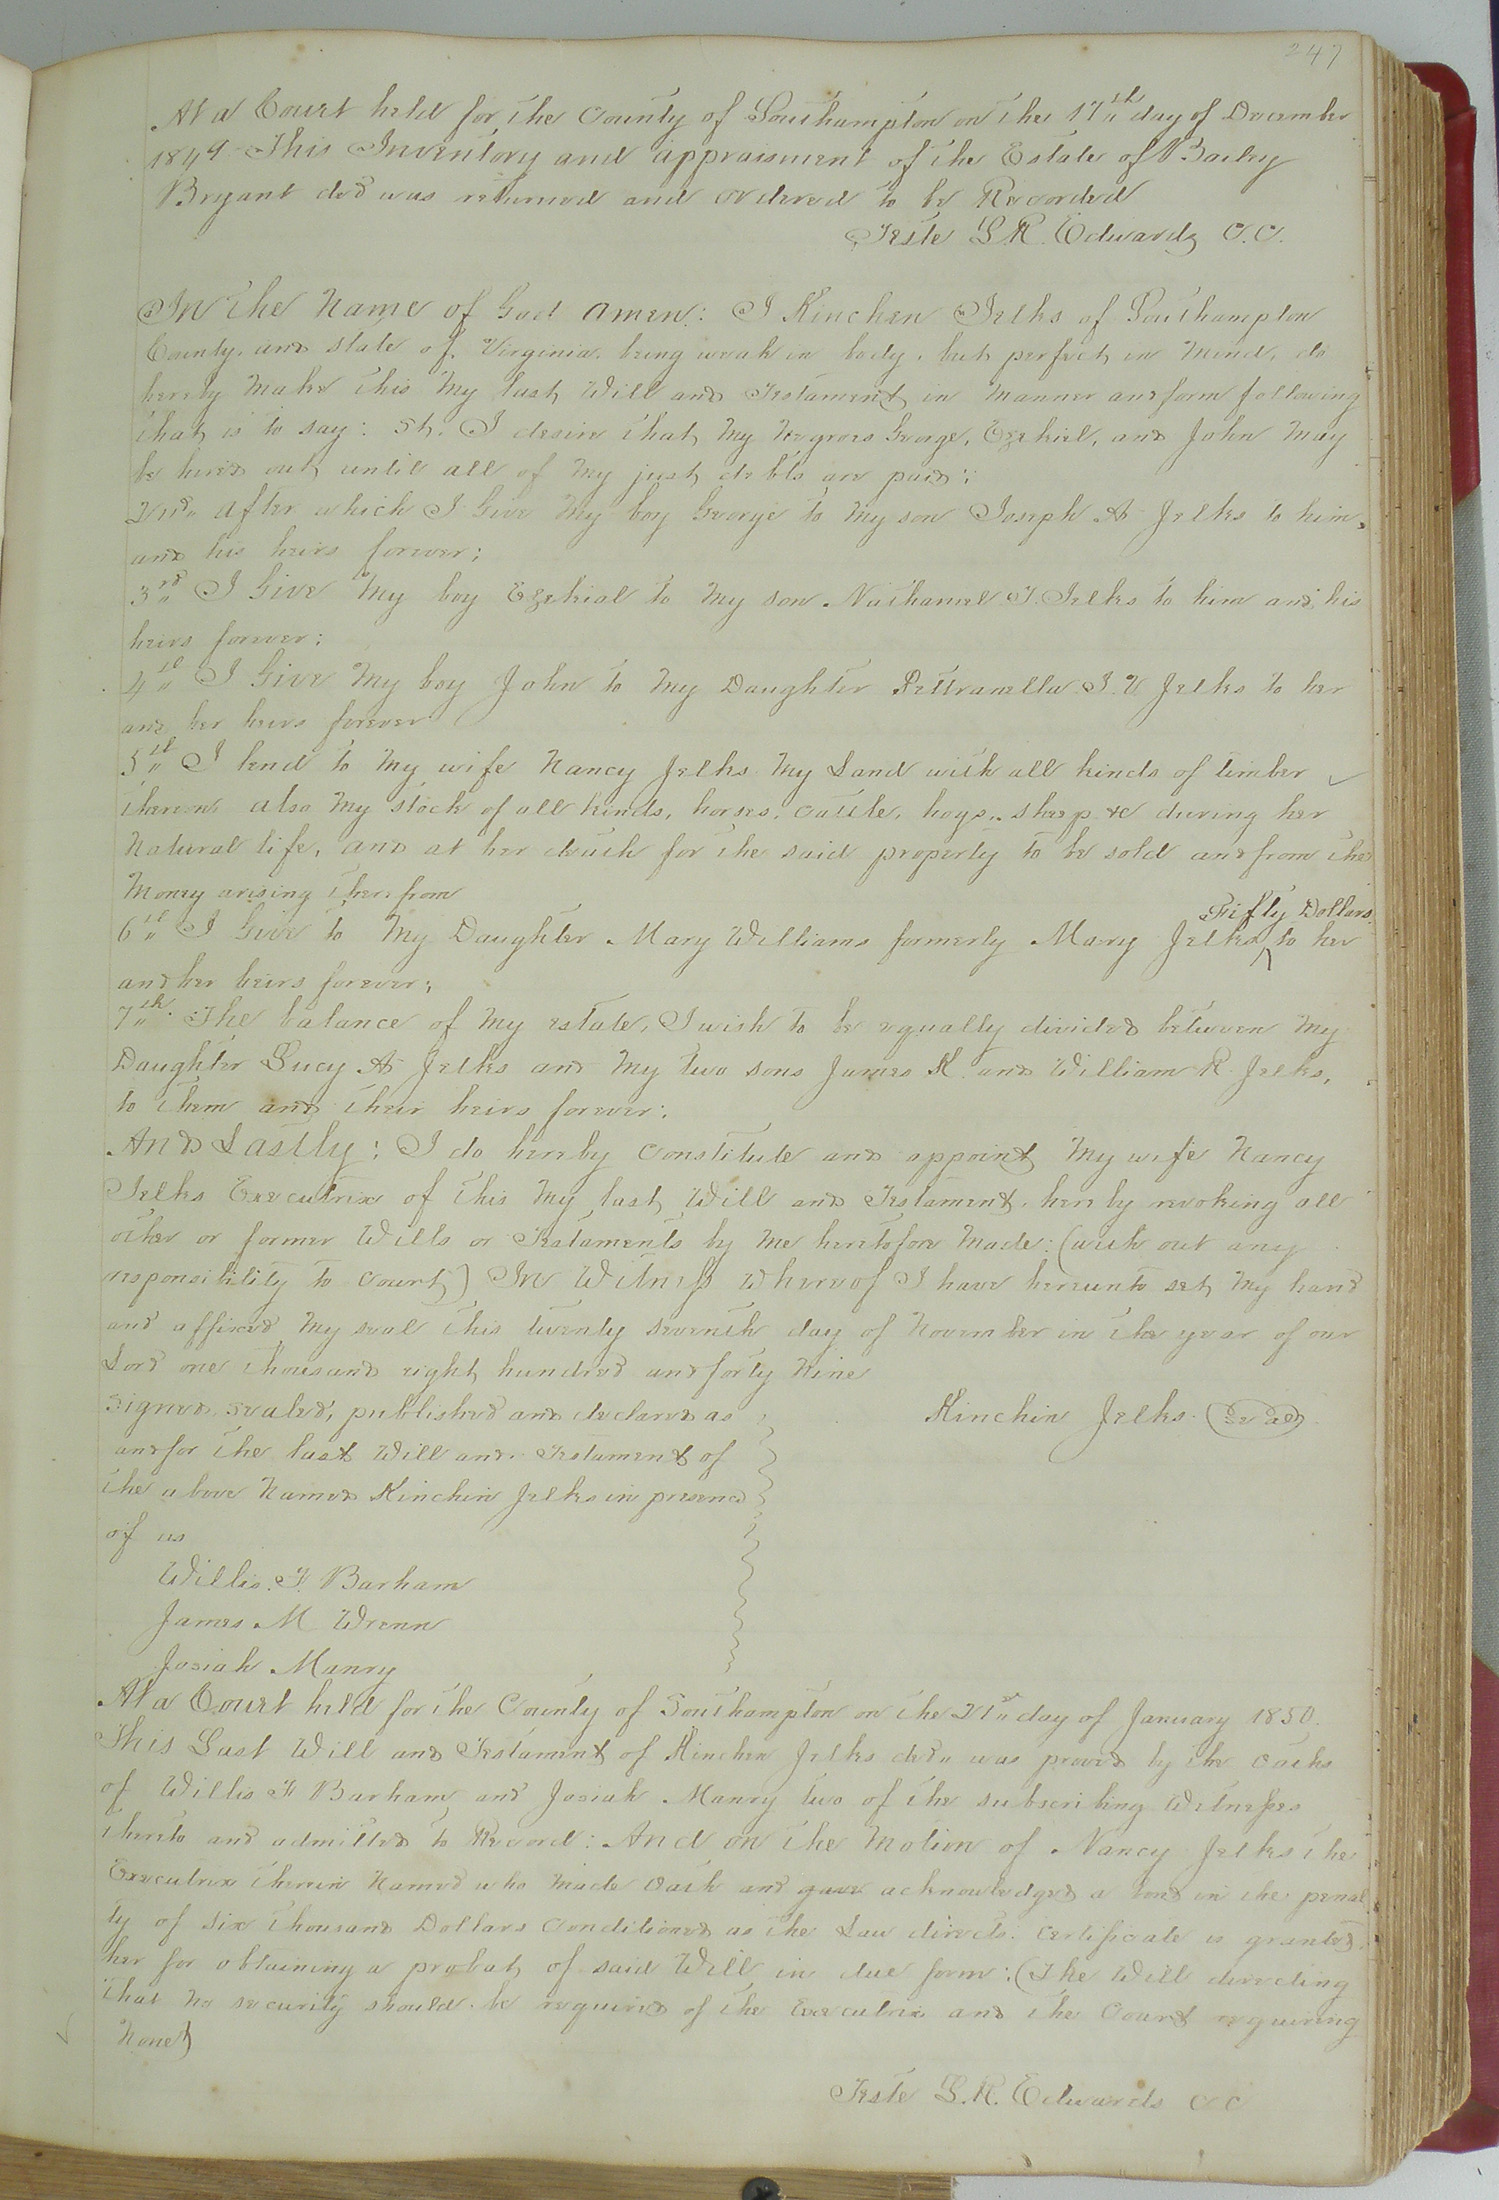 247
At a Court held for the County of Southampton on the 17th day of December
1849 This Inventory and appraisment of the Estate of Bailey
Bryant decd was returned and ordered to be Recorded
Teste L R. Edwards C.C.
In the Name of God Amen: I Kinchen Jelks of Southampton
County, and state of, Virginia, being weak in body, but perfect, in Mind, do
hereby Make this My last Will and Testament in Manner and form following
that is to say: St. I desire that, My Negroes George, Ezekiel, and John May
be hired out, until all of My just debts are paid;
2nd. after which I Give My boy George to My son Joseph A Jelks to him,
and his heirs forever;
3rd I Give My boy Ezekial to My son Nathaniel T. Jelks to him and his
heirs forever;
4th I Give My boy John to My Daughter Pettranella J. V Jelks to her
and her heirs forever
5th I lend to My wife Nancy Jelks My Land with all kinds of timber
thereon also My stock of all kinds, horses, cattle, hogs, sheep &c during her
Natural life, and at her death for the said property to be sold and from the
Money arising therefrom
Fifty Dollars
6th I Give to My Daughter Mary Williams formerly Mary Jelks ^ to her
and her heirs forever;
7th. The balance of My estate, I wish to be equally divided between My
Daughter Lucy A Jelks and My two sons James K. and William R Jelks,
to them and their heirs forever;
And Lastly; I do hereby constitute and appoint My wife Nancy
Jelks Executrix of this My last Will and Testament, hereby revoking all
other or former Wills or Testaments by Me heretofore Made: (with out any
responsibility to court) In Witness Whereof I have hereunto set, My hand
and affixed My seal this twenty seventh day of November in the year of our
Lord one thousand eight hundred and forty Nine
Signed, sealed, published and declared as
Kinchin Jelks (Seal)
and for the last Will and Testament of
the above Named Kinchin Jelks in presence
of us
Willis. F. Barham
James M Wrenn
Josiah Manry
At a Court held for the County of Southampton on the 21st day of January 1850.
This Last Will and Testament of Kinchen Jelks decd was proved by the Oaths
of Willis F Barham and Josiah Manry two of the subscribing Witnesses
thereto and admitted to Record: And on the Motion of Nancy Jelks the
Executrix therein Named who Made Oath and gave acknowledged a bond in the penal
ty of six thousand Dollars Conditioned as the Law directs. Certificate is granted
her for obtaining a probat, of said Will in due form: (The Will directing
that No security should be required of the Executrix and the Court requiring
None)
Teste L.R. Edwards CC